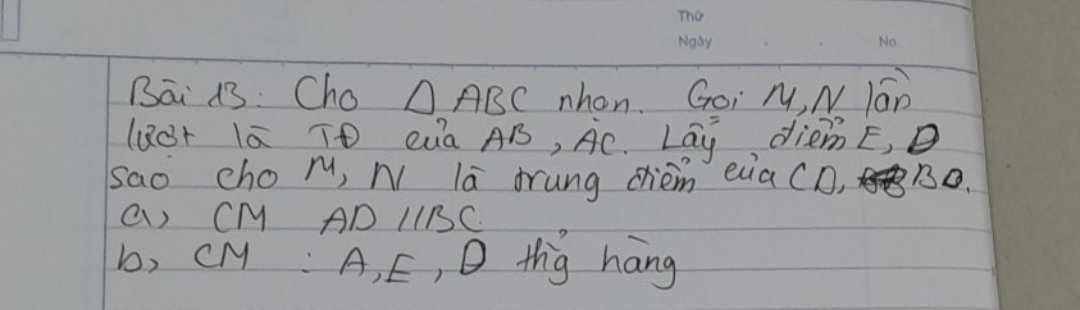 Thứ
Ngày . . No.
Bài 13: Cho Δ ABC nhọn. Gọi M, N lần
lượt là TĐ của AB, AC. Lấy điểm E, D
sao cho M, N là trung điểm của CD, BD.
a) CM AD // BC
b) CM : A, E, D thẳg hàng